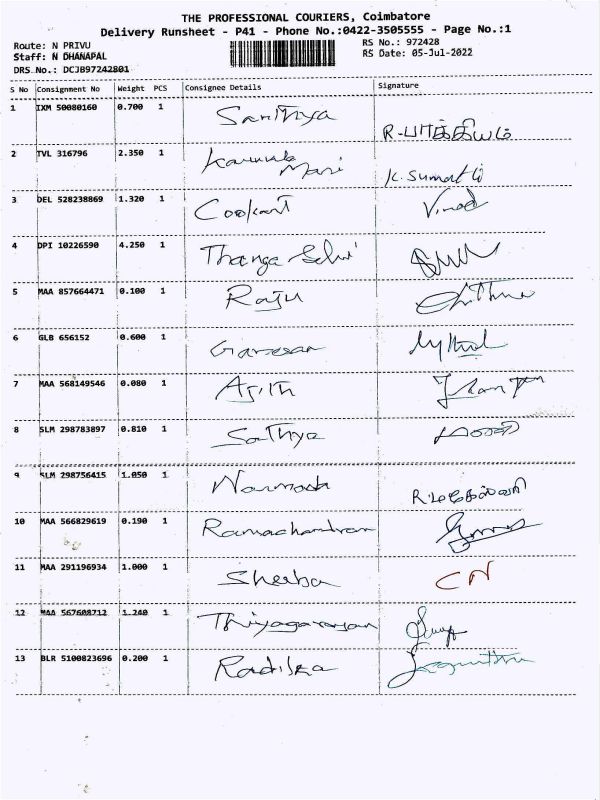 THE PROFESSIONAL COURIERS, Coimbatore
Delivery Runsheet - P41 - Phone No.:0422-3505555 - Page No.:1
Route: N PRIVU RS No.: 972428
Staff: N DHANAPAL RS Date: 05-Jul-2022
DRS No.: DCJB97242801
S No Consignment No Weight PCS Consignee Details Signature
1 IXM 50080160 0.700 1 Sanithya
2 TVL 316796 2.350 1 Mani K. Sumathi
3 DEL 528238869 1.320 1 Cookant Vinod
4 DPI 10226590 4.250 1 Thanga Selvi
5 MAA 857664471 0.100 1 Raju
6 GLB 656152 0.600 1 Ganesan
7 MAA 568149546 0.080 1 Ajith
8 SLM 298783897 0.810 1 Sathya
9 SLM 298756415 1.050 1 Narmada
10 MAA 566829619 0.190 1 Ramachandran
11 MAA 291196934 1.000 1 Sheeba CN
12 MAA 567608712 1.240 1 Thiyagarajan
13 BLR 5100823696 0.200 1 Radika